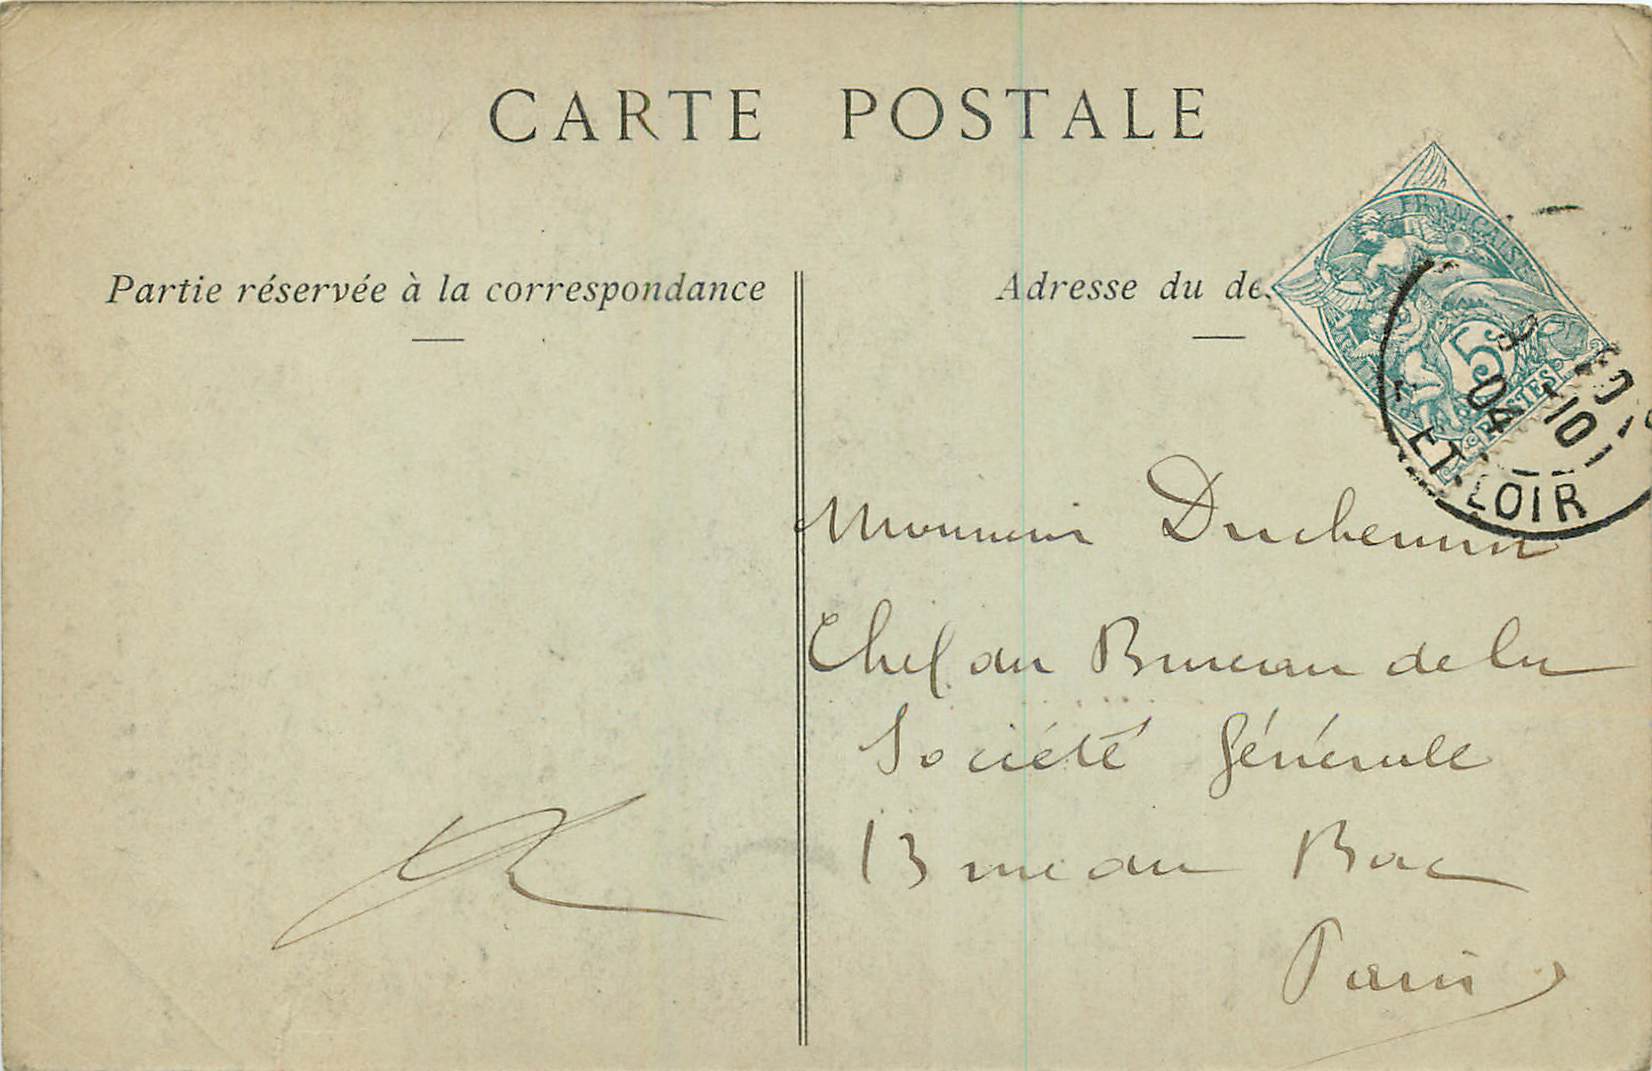 CARTE POSTALE
Partie réservée à la correspondance
Adresse du de
FRANÇAISE
5
POSTES
9 -10
04
ET-LOIR
Monsieur Duchemin
Chef du Bureau de la
Société Générale
13 rue du Bac
Paris